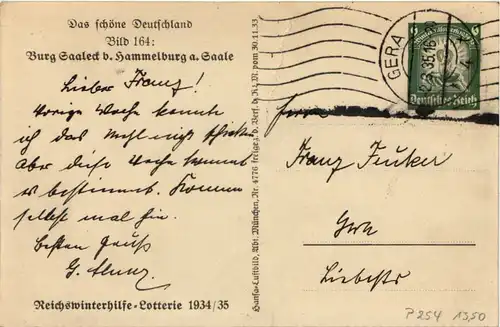 Das schöne Deutschland
Bild 164:
Burg Saaleck b. Hammelburg a. Saale
Lieber Franz!
Vorige Woche konnte
ich das Mehl nicht schicken
aber diese Woche kommt
es bestimmt. Komme
selbst mal hin.
Besten Gruß
G.
Reichswinterhilfe-Lotterie 1934/35
Hansa-Luftbild, Abt. München, Nr. 4776 freigeg. d. Verf. d. R.L.M. vom 30.11.33
GERA
6
6
Deutsches Reich
Herrn
Franz
Gera
P254 13,50